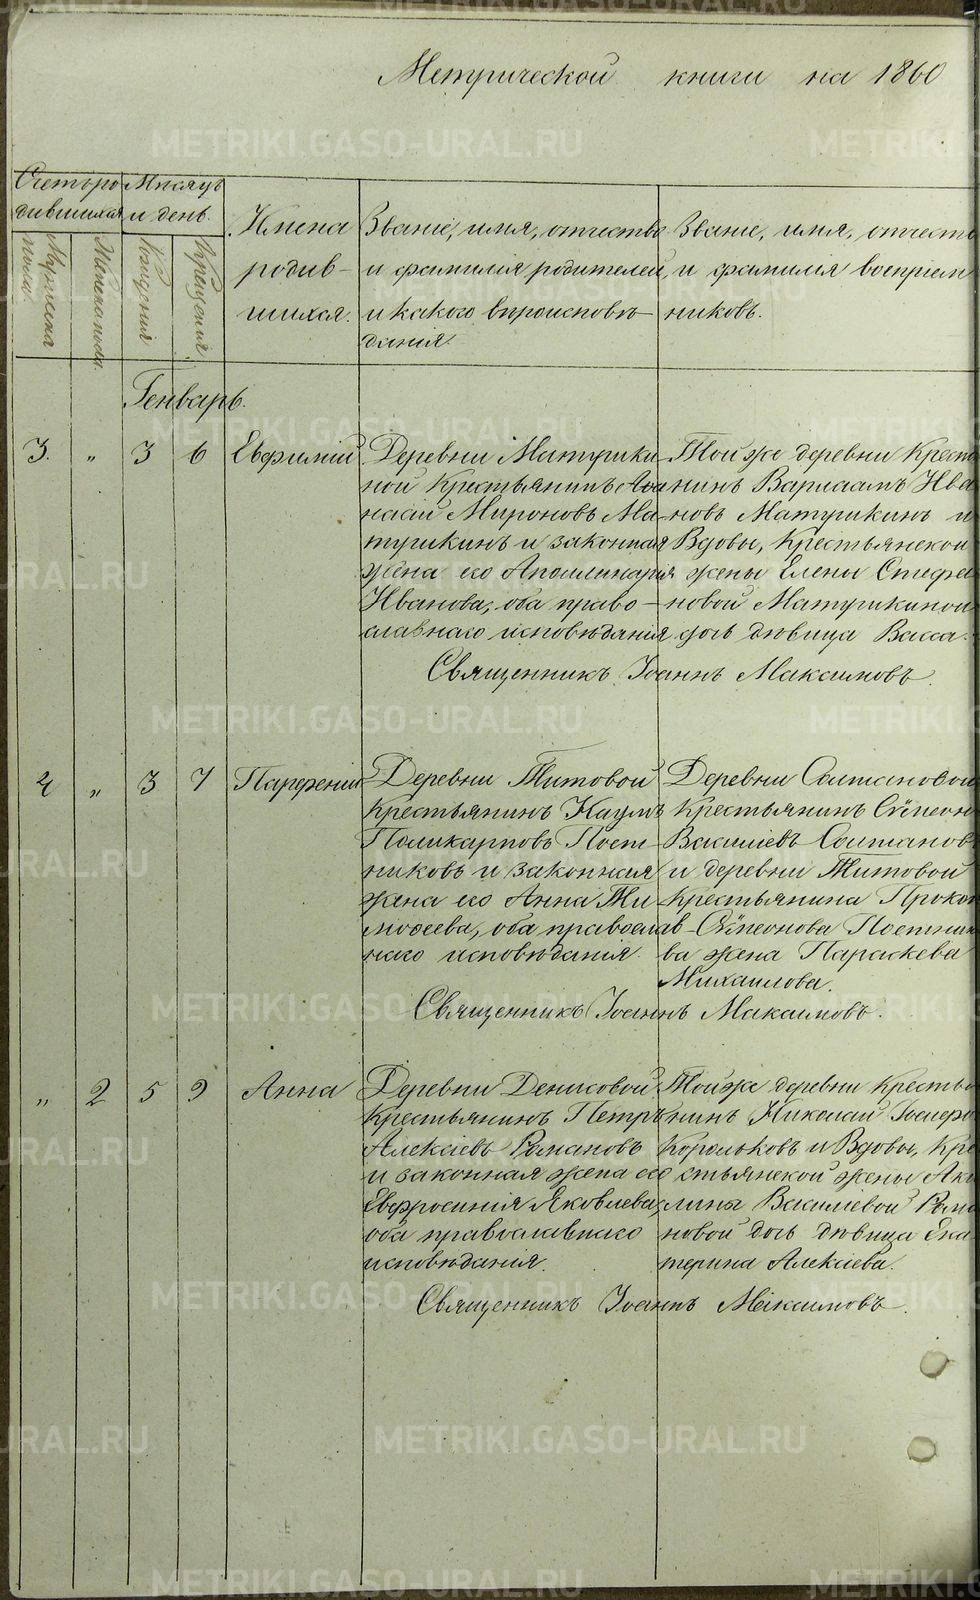 Метрической книги на 1860
Счетъ ро
дившихся
Мѣсяцъ
и день.
Мужеска
пола.
Женска пола.
Рожденія
Крещенія
Имена
родив-
шихся.
Званіе, имя, отчество
и фамилія родителей,
и какого вѣроисповѣ-
данія.
Званіе, имя, отчест
и фамилія воспріем
никовъ.
Генварь.
3. „ 3 6 Евфимій
Деревни Матушки-
ной Крестьянинъ Аѳа
насій Мироновъ Ма-
тушкинъ и законная
жена его Аполлинарія
Иванова, оба право-
славнаго исповѣданія
Той же деревни Крест
нинъ Варлаамъ Ива
новъ Матушкинъ и
Вдовы, Крестьянской
жены Елены Стефа
новой Матушкиной
дочь дѣвица Васса.
Священникъ Іоаннъ Максимовъ.
4 „ 3 7 Парфеній
Деревни Титовой
Крестьянинъ Наумъ
Поликарповъ Пост-
никовъ и законная
жена его Анна Ти-
моѳеева, оба православ-
наго исповѣданія.
Деревни Салтановой
Крестьянинъ Сѵмеон
Василіевъ Салтанов
и деревни Титовой
Крестьянина Проко
Сѵмеонова Постник
ва жена Параскева
Михаилова.
Священникъ Іоаннъ Максимовъ.
„ 2 5 9 Анна
Деревни Денисовой
Крестьянинъ Петръ
Алексіевъ Романовъ
и законная жена его
Евфросинія Яковлева,
оба православнаго
исповѣданія.
Той же деревни Крестья
нинъ Николай Іосифо
Корольковъ и Вдовы, Кре
стьянской жены Аку
лины Василіевой Рома
новой дочь дѣвица Ека
терина Алексіева.
Священникъ Іоаннъ Максимовъ.
METRIKI.GASO-URAL.RU